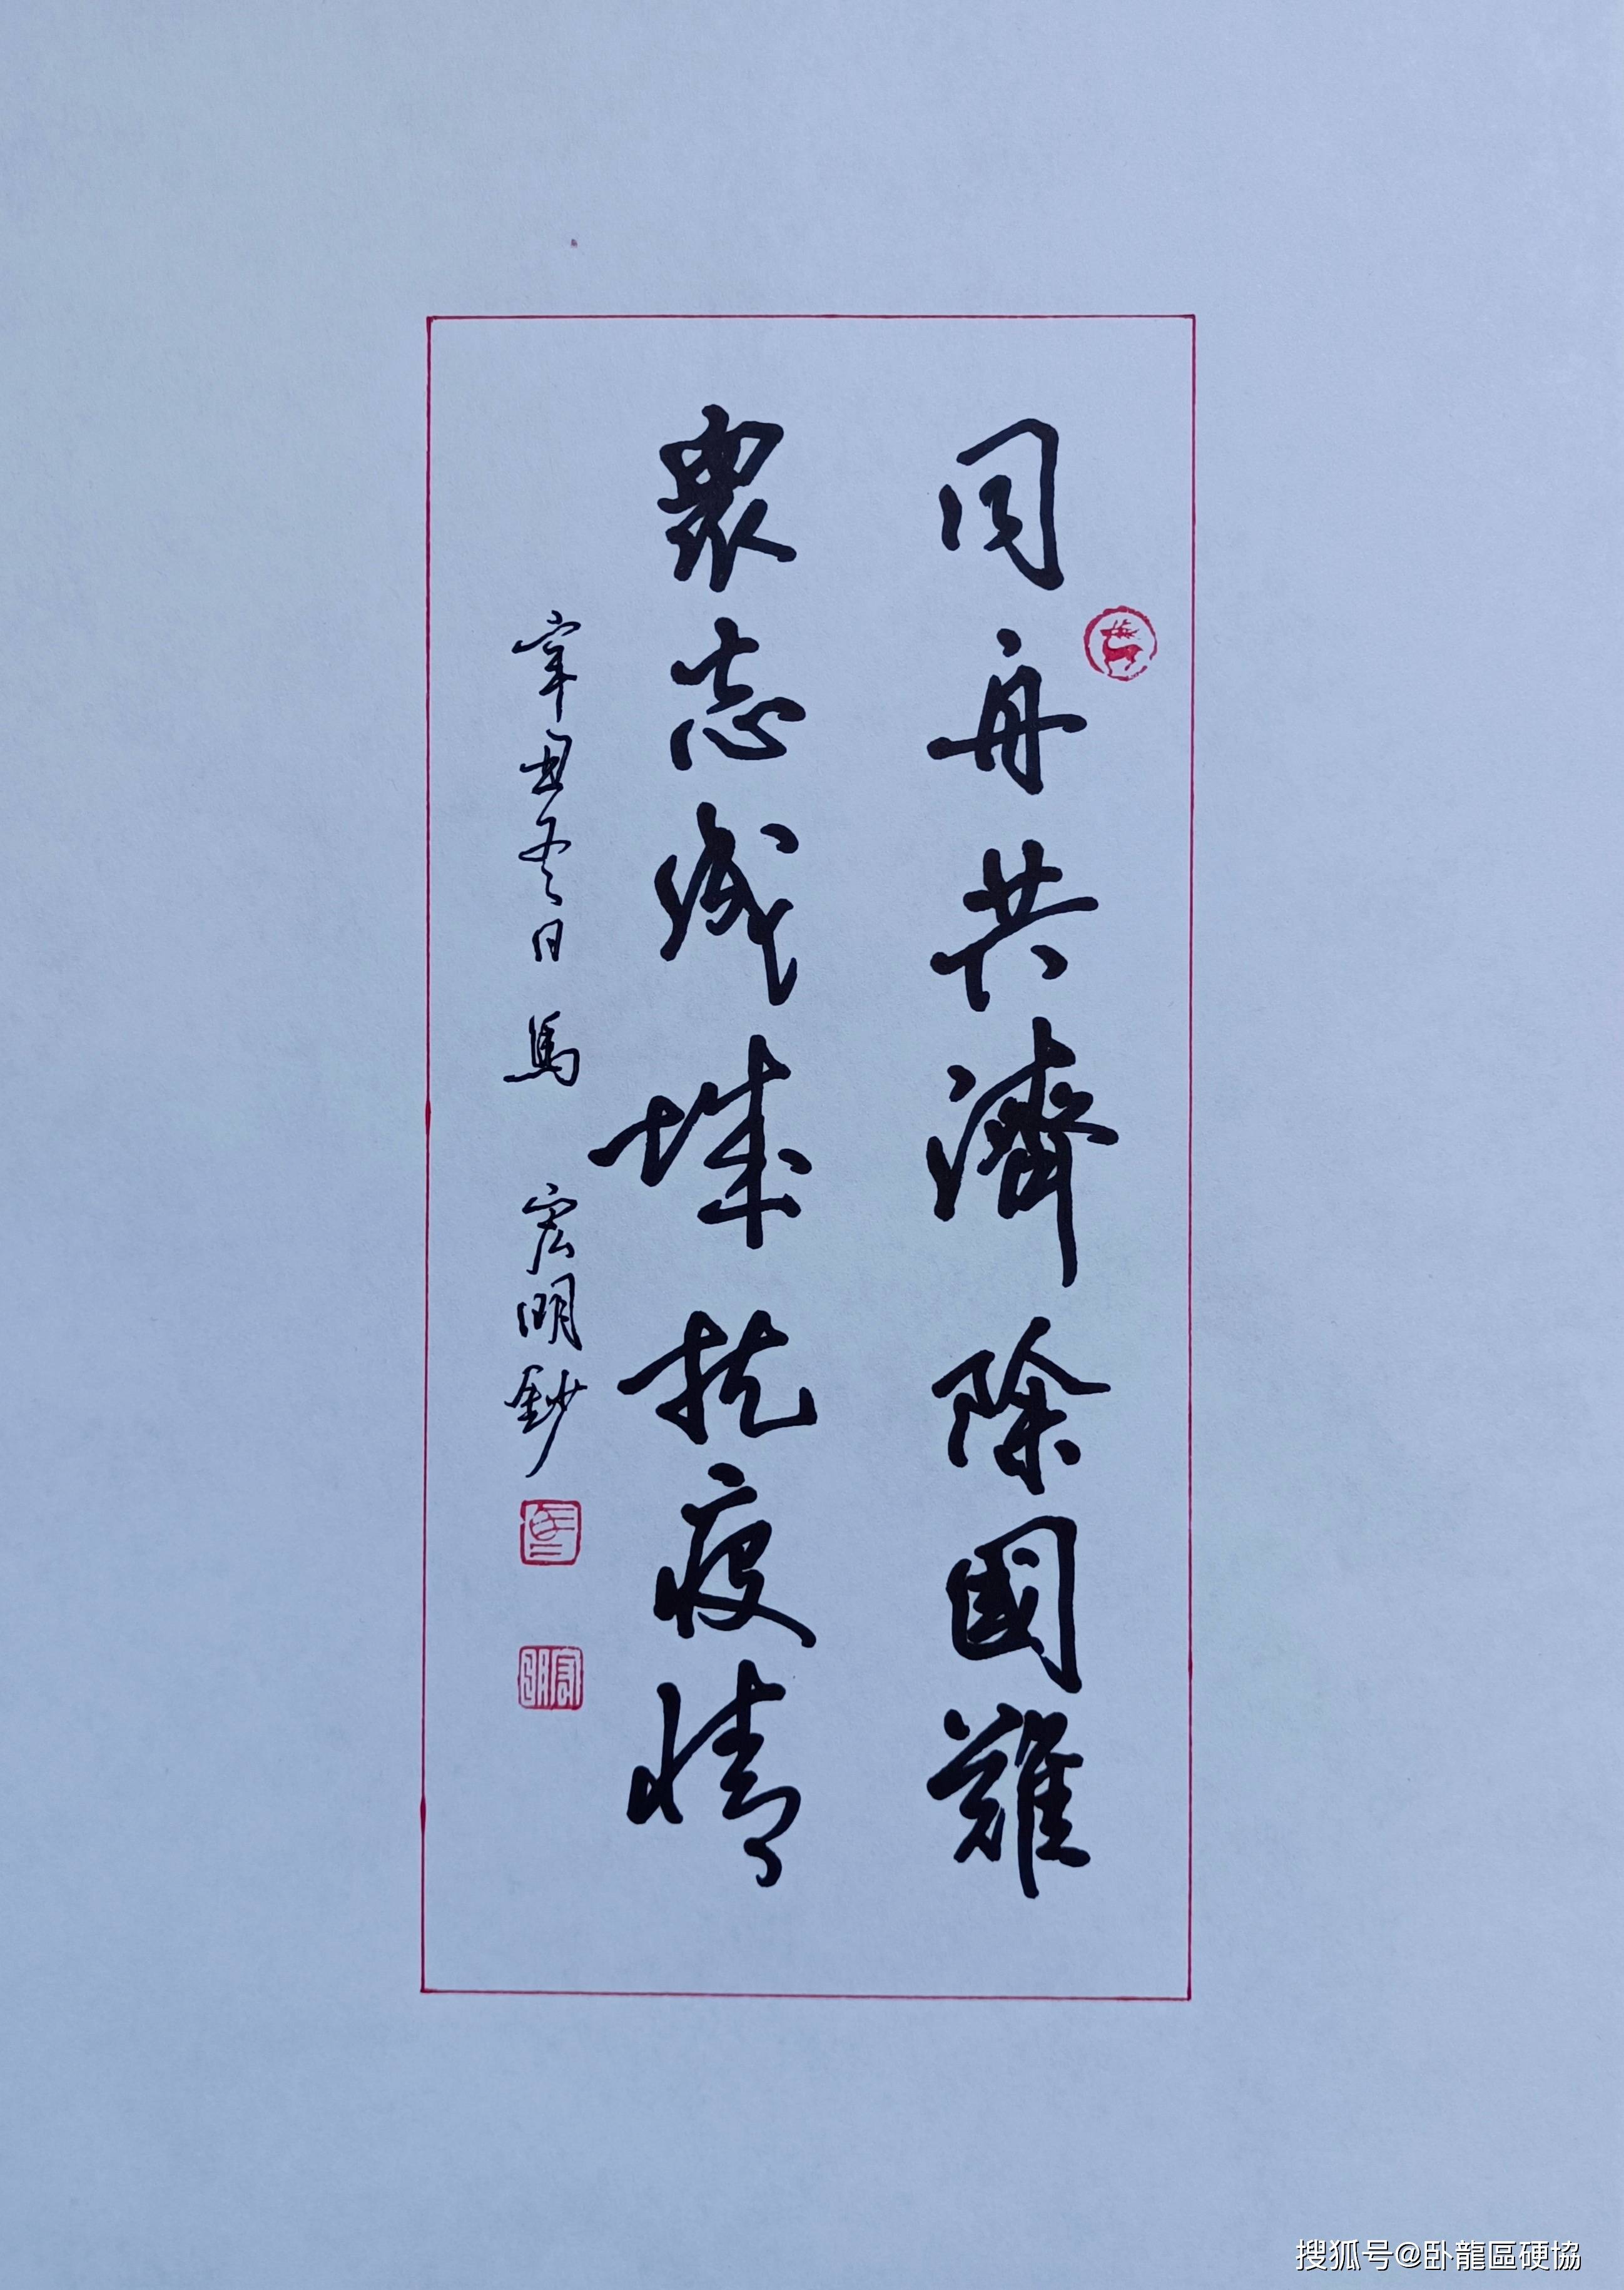 同舟共濟除國難
衆志成城抗疫情
辛丑冬日馬宏明鈔
搜狐号@卧龍區硬協